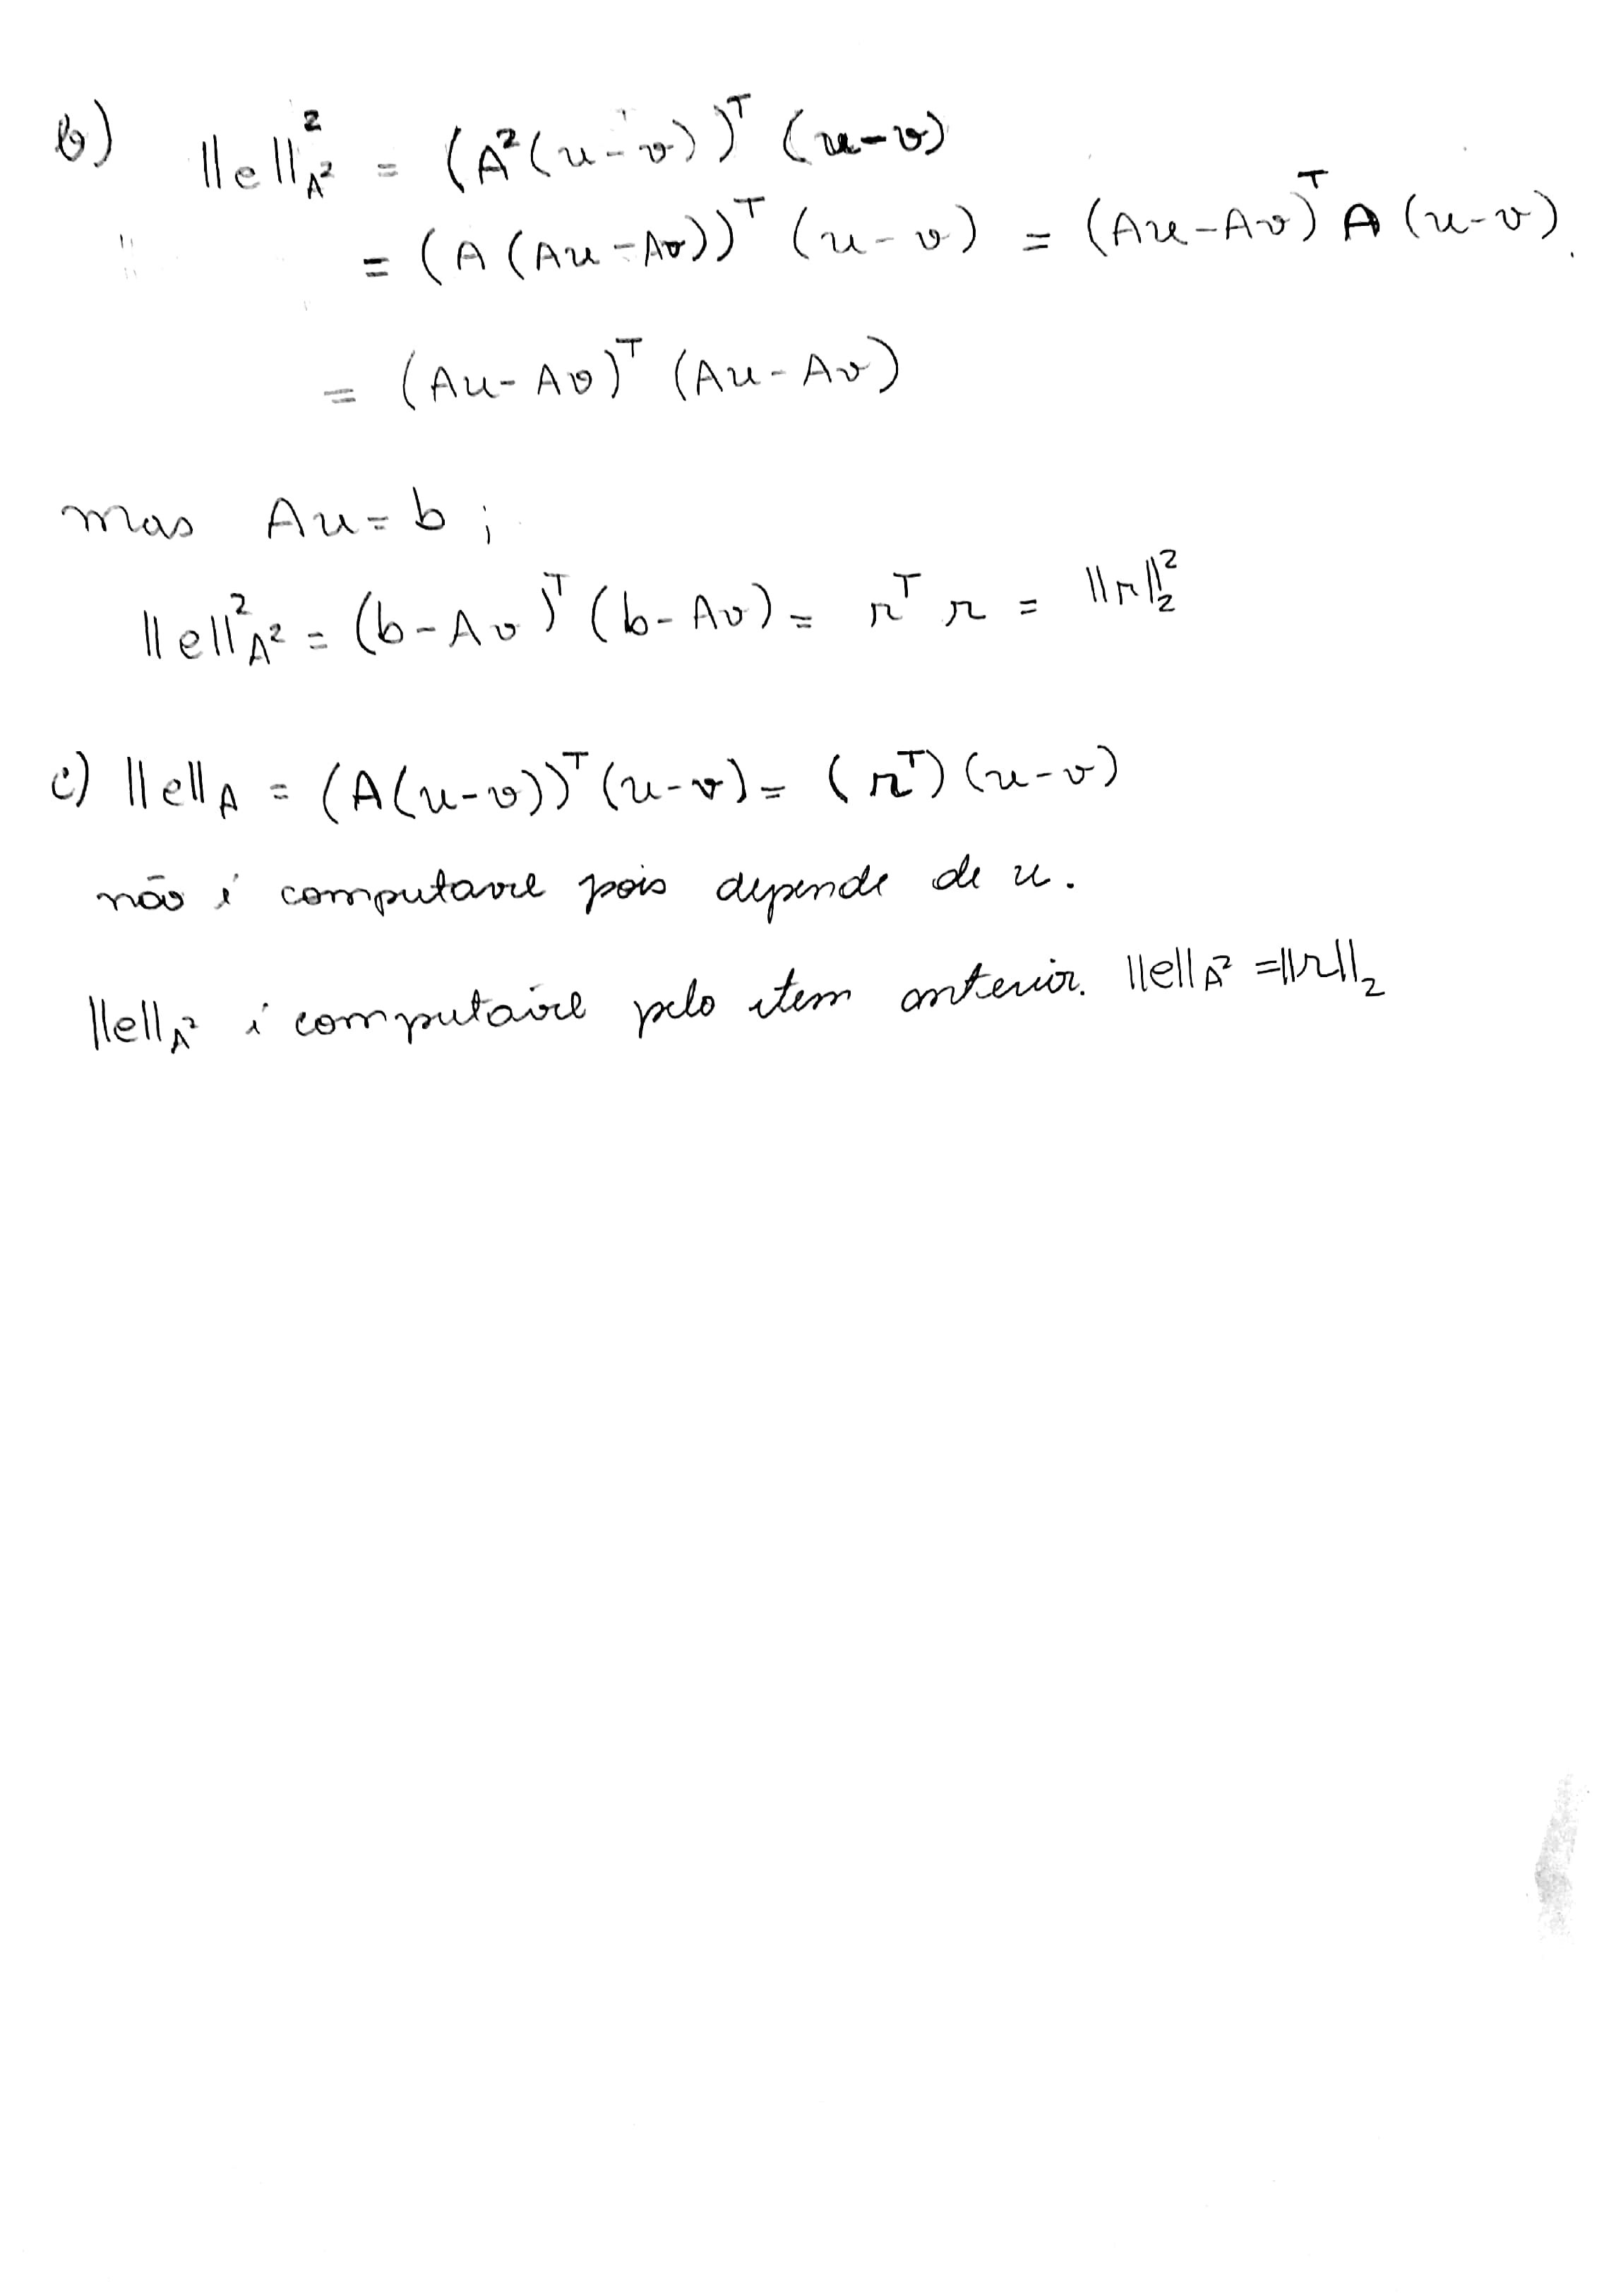 b) ||e||²_{A²} = (A²(u-v))^T (u-v)
= (A(Au-Av))^T (u-v) = (Au-Av)^T A(u-v).
= (Au-Av)^T (Au-Av)
mas Au=b;
||e||²_{A²} = (b-Av)^T (b-Av) = r^T r = ||r||²_2
c) ||e||_A = (A(u-v))^T (u-v) = (r^T)(u-v)
não é computavel pois depende de u.
||e||_{A²} é computável pelo item anterior. ||e||_{A²} = ||r||_2